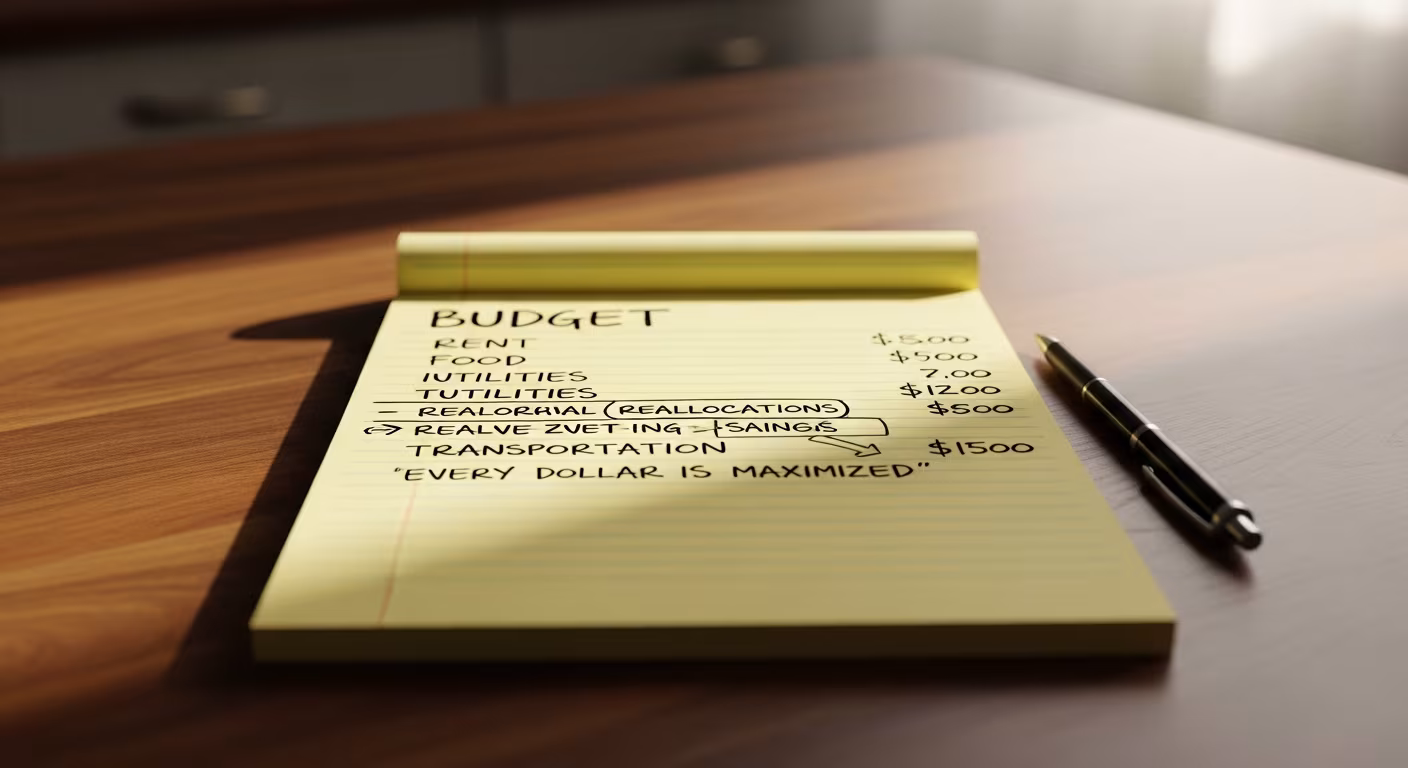 BUDGET
RENT $5.00
FOOD $500
IUTILITIES 7.00
TUTILITIES $12.00
- REALORHIAL (REALLOCATIONS) $500
REALVE ZVET-ING SAINGIS
TRANSPORTATION $1500
"EVERY DOLLAR IS MAXIMIZED"